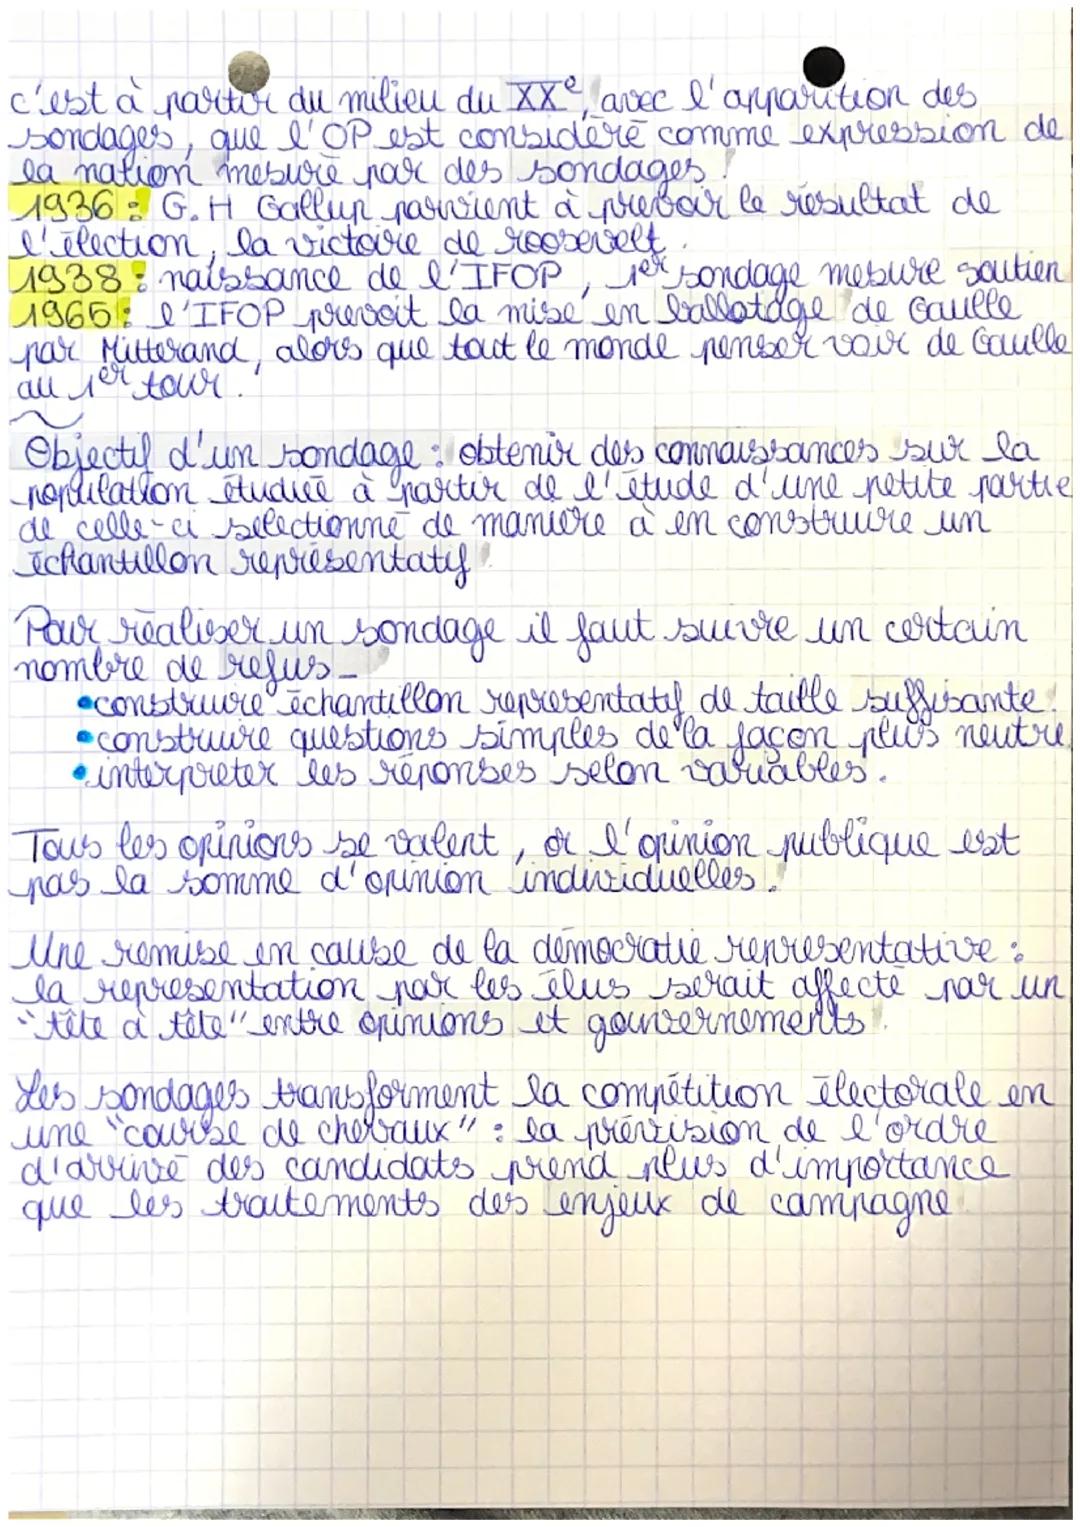 c'est à partir du milieu du XXe, avec l'apparition des
sondages, que l'OP est considéré comme expression de
la nation mesuré par des sondages.
1936 : G.H Gallup parvient à prevoir le résultat de
l'élection, la victoire de roosevelt.
1938 : naissance de l'IFOP, 1er sondage mesure soutien
1965 : l'IFOP prevoit la mise en ballotage de Gaulle
par Mitterand, alors que tout le monde penser voir de Gaulle
au 1er tour.
Objectif d'un sondage : obtenir des connaissances sur la
population étudiée à partir de l'étude d'une petite partie
de celle-ci sélectionné de manière à en construire un
échantillon représentatif.
Pour réaliser un sondage il faut suivre un certain
nombre de refus_
•construire échantillon représentatif de taille suffisante.
•construire questions simples de la façon plus neutre
•interpreter les réponses selon variables.
Tous les opinions se valent, or l'opinion publique est
pas la somme d'opinion individuelles.
Une remise en cause de la démocratie représentative :
la représentation par les élus serait affecté par un
"tête à tête" entre opinions et gouvernements.
Les sondages transforment la compétition électorale en
une "course de chevaux" : la prévision de l'ordre
d'arrivé des candidats prend plus d'importance
que les traitements des enjeux de campagne